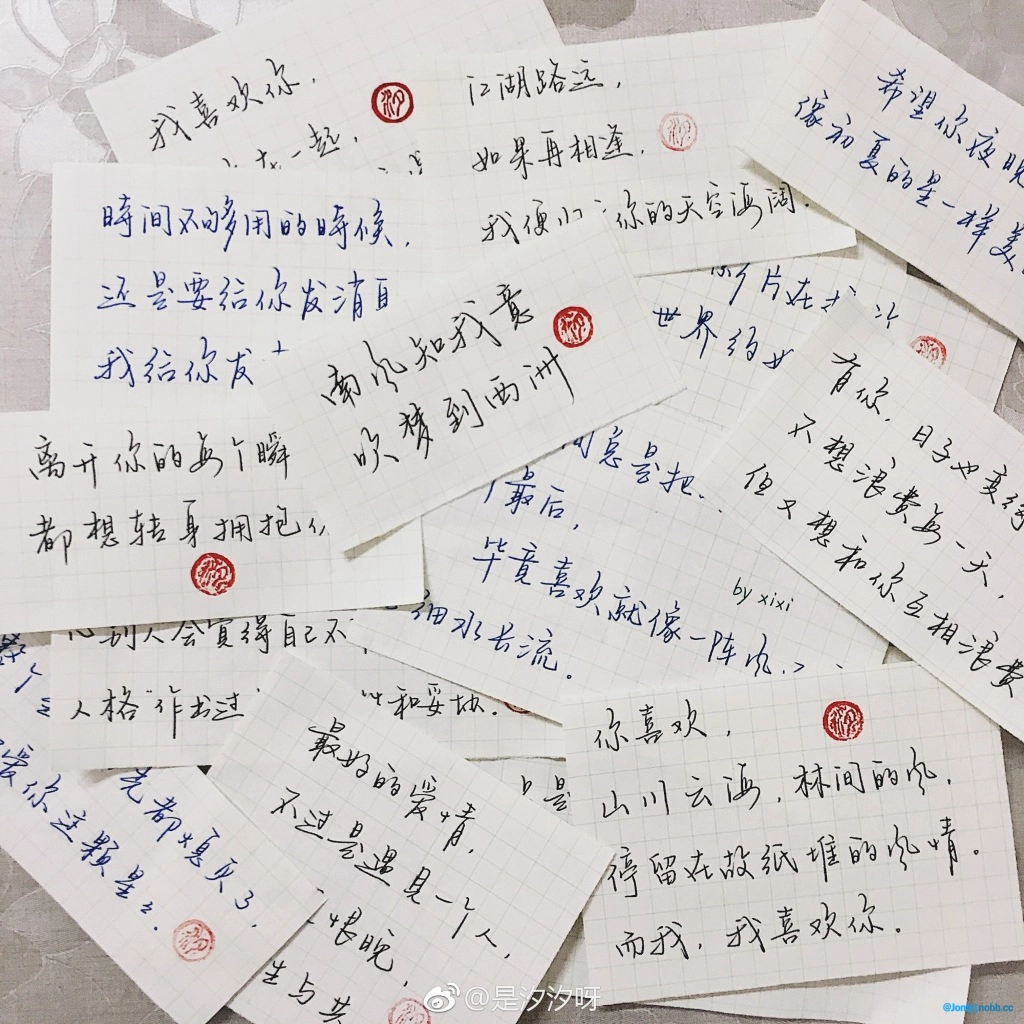 我喜欢你，
一起，
江湖路远，
如果再相逢，
我便 你的天空海阔.
希望你夜晚
像初夏的星一样美
時间不够用的時候，
还是要给你发消息
我给你发
南风知我意
吹梦到西洲
片在
世界约
有你，日子也变得
不想浪费每一天，
但又想和你互相浪费
离开你的每个瞬
都想转身拥抱
总是把
最后，
毕竟喜欢就像一阵风
细水长流。
by xixi
别人会觉得自己不
人格"作出过
和妥协.
个
爱你这颗星
先都熄灭了，
最好的爱情，
不过是遇见一个人，
恨晚，
生与共
只是
你喜欢，
山川云海，林间的风，
停留在故纸堆的风情。
而我，我喜欢你。
汐
@是汐汐呀